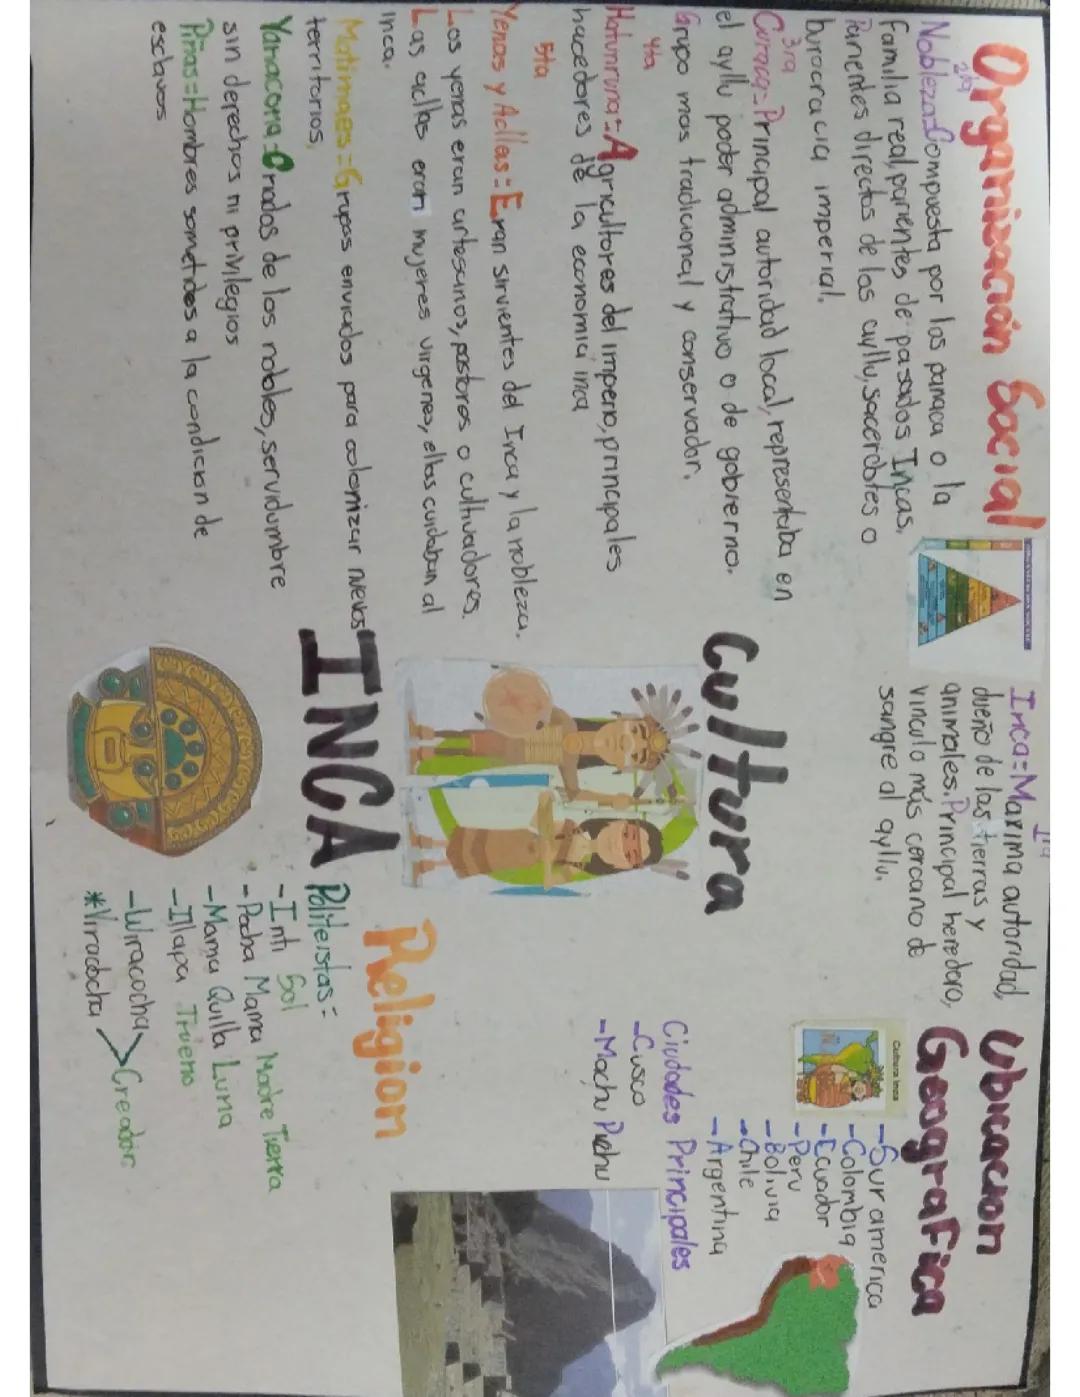 Organización Social
2da
Nobleza=Compuesta por los panaca o la
familia real, parientes de pasados Incas.
Parientes directos de los ayllu, sacerdotes o
burocracia imperial.
3ra
Curaca=Principal autoridad local, representaba en
el ayllu poder administrativo o de gobierno.
Grupo mas tradicional y conservador.
4ta
Hatunruna=Agricultores del imperio, principales
hacedores de la economia inca
5ta
Yenas y Acllas=Eran sirvientes del Inca y la nobleza.
Los yenas eran artesanos, pastores o cultivadores.
Las acllas eran mujeres virgenes, ellas cuidaban al
inca.
Matimaes=Grupos enviados para colonizar nuevos
territorios.
Yanacona=Criados de los nobles, servidumbre
sin derechos ni privilegios
Pinas=Hombres sometidos a la condicion de
esclavos
1ra
Inca=Maxima autoridad,
dueño de las tierras y
animales. Principal heredoro,
vinculo más cercano de
sangre al ayllu.
Cultura
INCA
Ubicacion
Geografica
Cultura Inca
-Suramerica
-Colombia
-Ecuador
-Peru
-Bolivia
-Chile
-Argentina
Ciudades Principales
-Cusco
-Machu Pichu
Religion
Politeistas=
-Inti Sol
-Pacha Mama Madre Tierra
-Mama Quilla Luna
-Illapa Trueno
-Wiracocha
*Viracocha >Creador